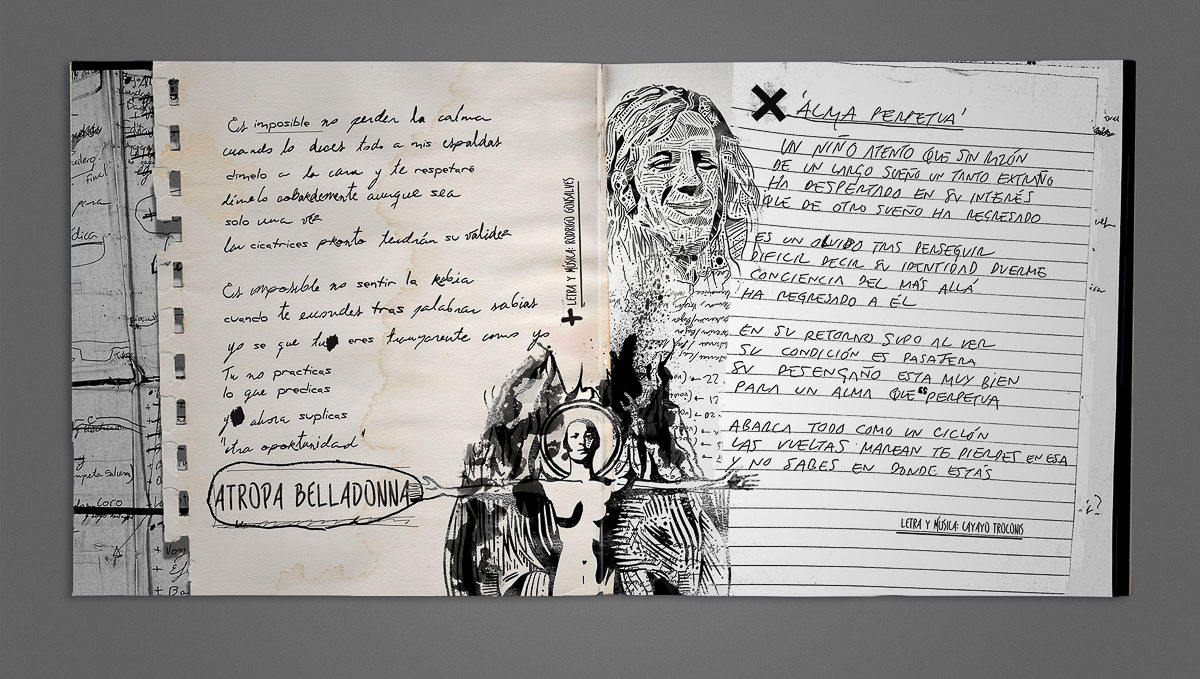 Es imposible no perder la calma
cuando lo dices todo a mis espaldas
dimelo a la cara y te respetaré
dimelo cobardemente aunque sea
solo una vez
Las cicatrices pronto tendrán su validez
Es imposible no sentir la rabia
cuando te escondes tras palabras sabias
yo se que tu eres transparente como yo
Tu no practicas
lo que predicas
y ahora suplicas
"otra oportunidad"
ATROPA BELLADONNA
+ LETRA Y MÚSICA: RODRIGO GONSALVES
X 'ALMA PERPETUA'
UN NIÑO ATENTO QUE SIN RAZÓN
DE UN LARGO SUEÑO UN TANTO EXTRAÑO
HA DESPERTADO EN SU INTERÉS
QUE DE OTRO SUEÑO HA REGRESADO
ES UN OLVIDO TRAS PERSEGUIR
DIFICIL DECIR SU IDENTIDAD DUERME
CONCIENCIA DEL MÁS ALLÁ
HA REGRESADO A ÉL
EN SU RETORNO SUPO AL VER
SU CONDICIÓN ES PASAJERA
SU DESENGAÑO ESTA MUY BIEN
PARA UN ALMA QUE ES PERPETUA
ABARCA TODO COMO UN CICLÓN
LAS VUELTAS MAREAN TE PIERDES EN ESA
Y NO SABES EN DONDE ESTÁS
LETRA Y MÚSICA: CAYAYO TROCONIS